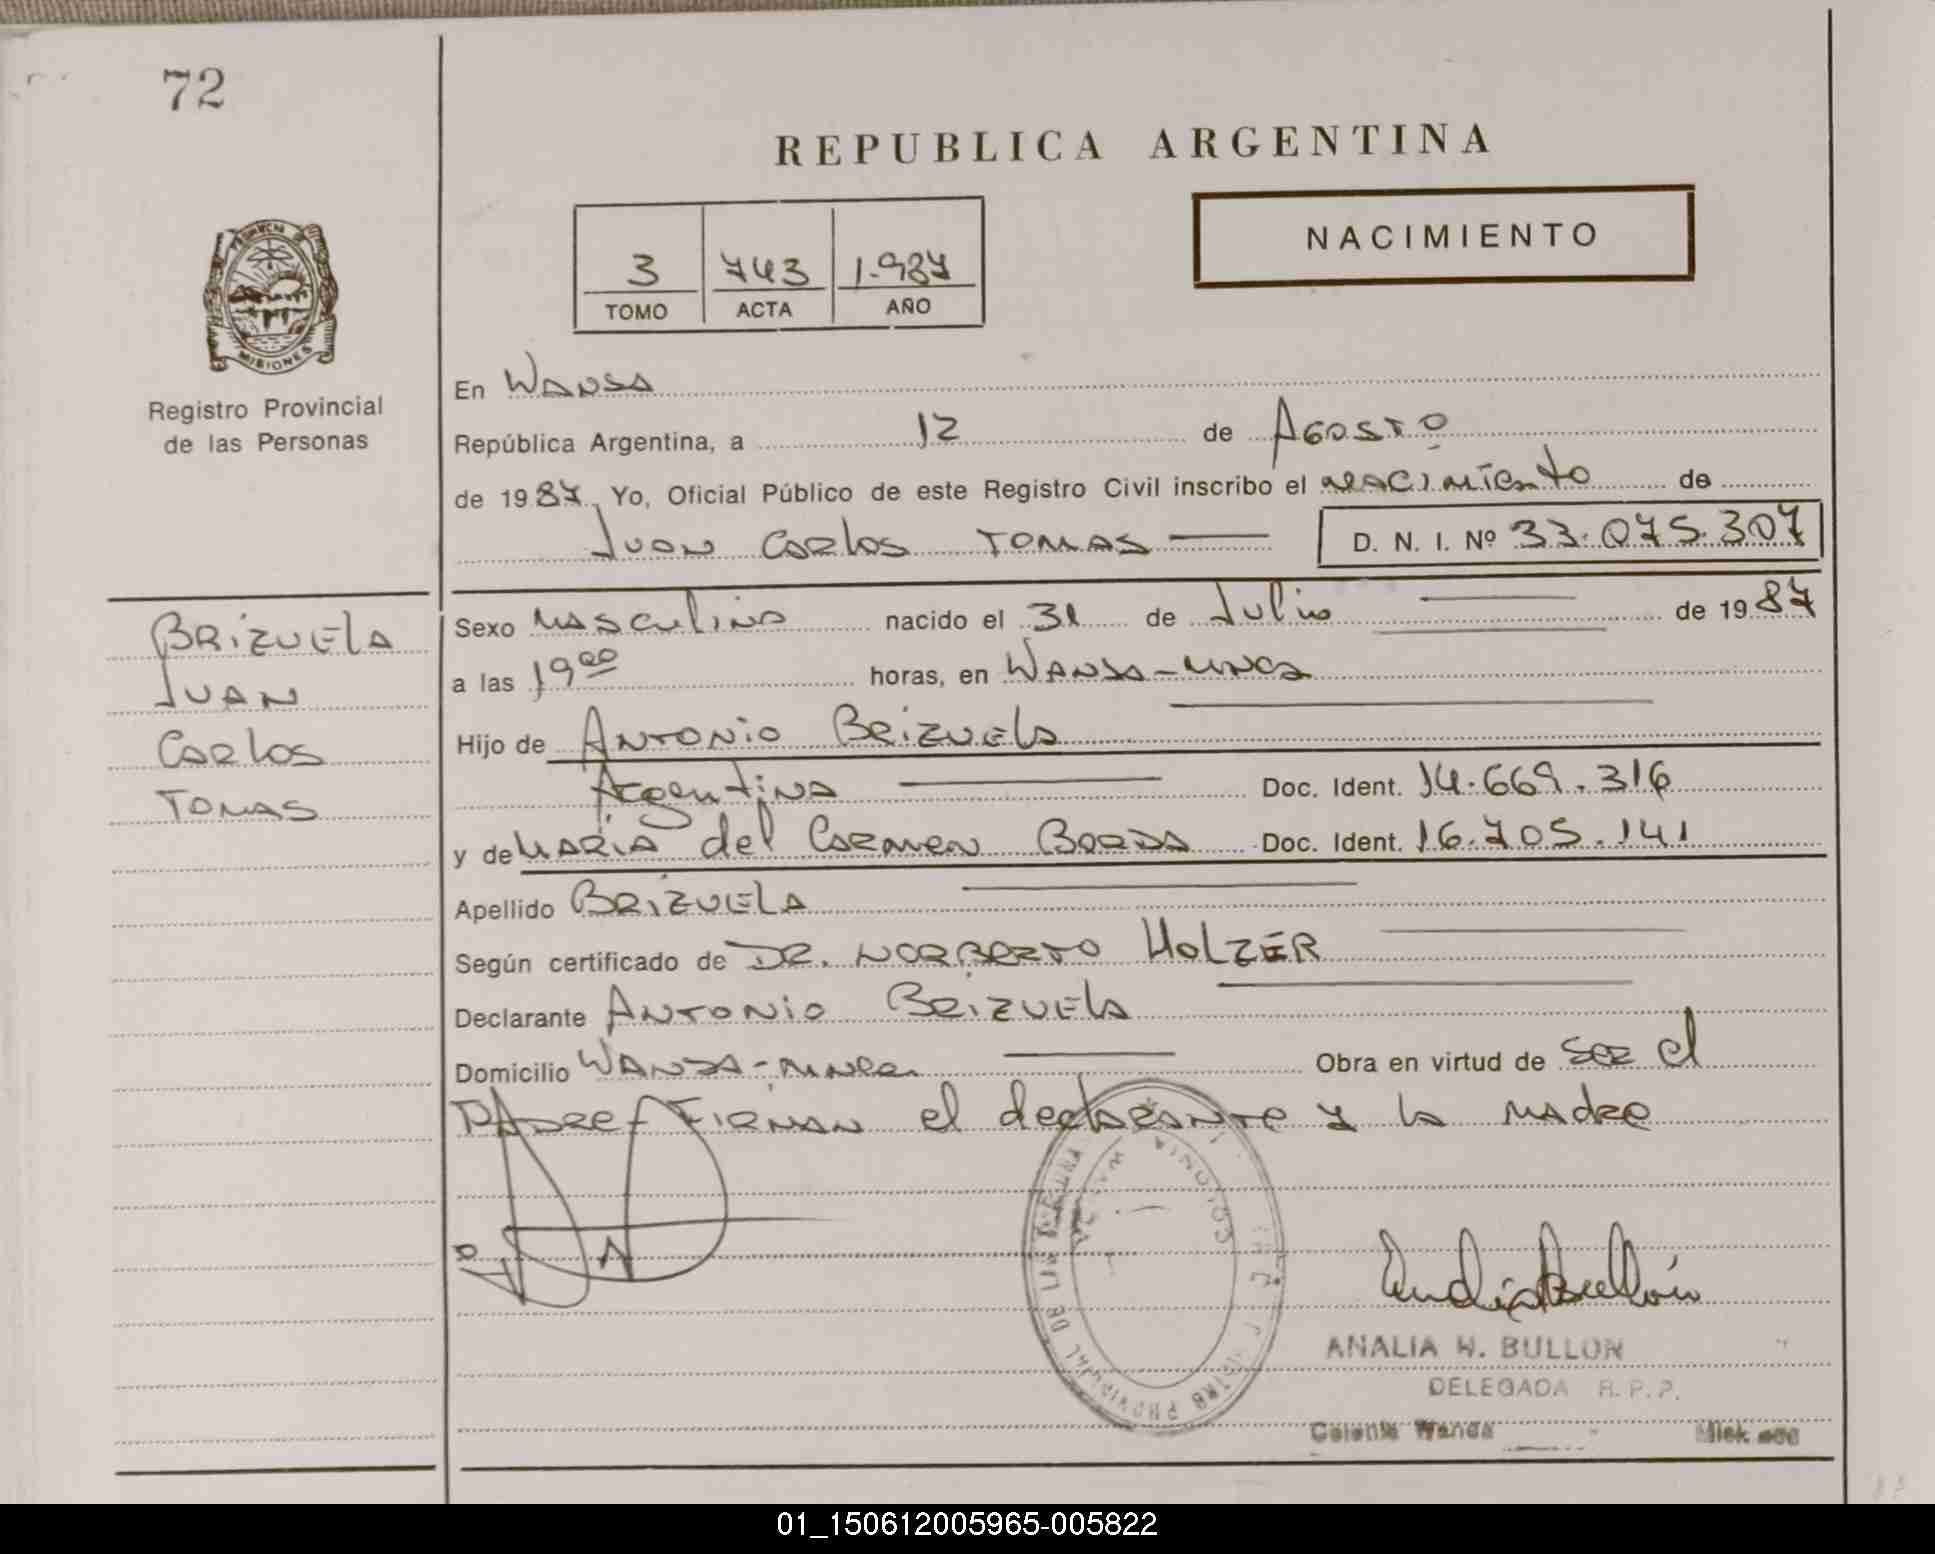 72
REPUBLICA ARGENTINA
NACIMIENTO
3 743 1.987
TOMO ACTA AÑO
PROVINCIA DE
MISIONES
Registro Provincial
de las Personas
En WANDA
República Argentina, a 12 de AGOSTO
de 1987 Yo, Oficial Público de este Registro Civil inscribo el nacimiento de
JUAN CARLOS TOMAS D. N. I. Nº 33.075.307
BRIZUELA
JUAN
CARLOS
TOMAS
Sexo MASCULINO nacido el 31 de Julio de 1987
a las 19 00 horas, en WANDA-MNES
Hijo de ANTONIO BRIZUELA
Argentina Doc. Ident. 14.669.316
y de MARIA del CARMEN BORDA Doc. Ident. 16.705.141
Apellido BRIZUELA
Según certificado de DR. NORBERTO HOLZER
Declarante ANTONIO BRIZUELA
Domicilio WANDA- Obra en virtud de SER el
PADRE FIRMAN el declarante y la MADRE
REGISTRO PROVINCIAL DE LAS
COLONIA WANDA
ANALIA W. BULLON
DELEGADA R.P.P.
Colonia Wanda
01_150612005965-005822